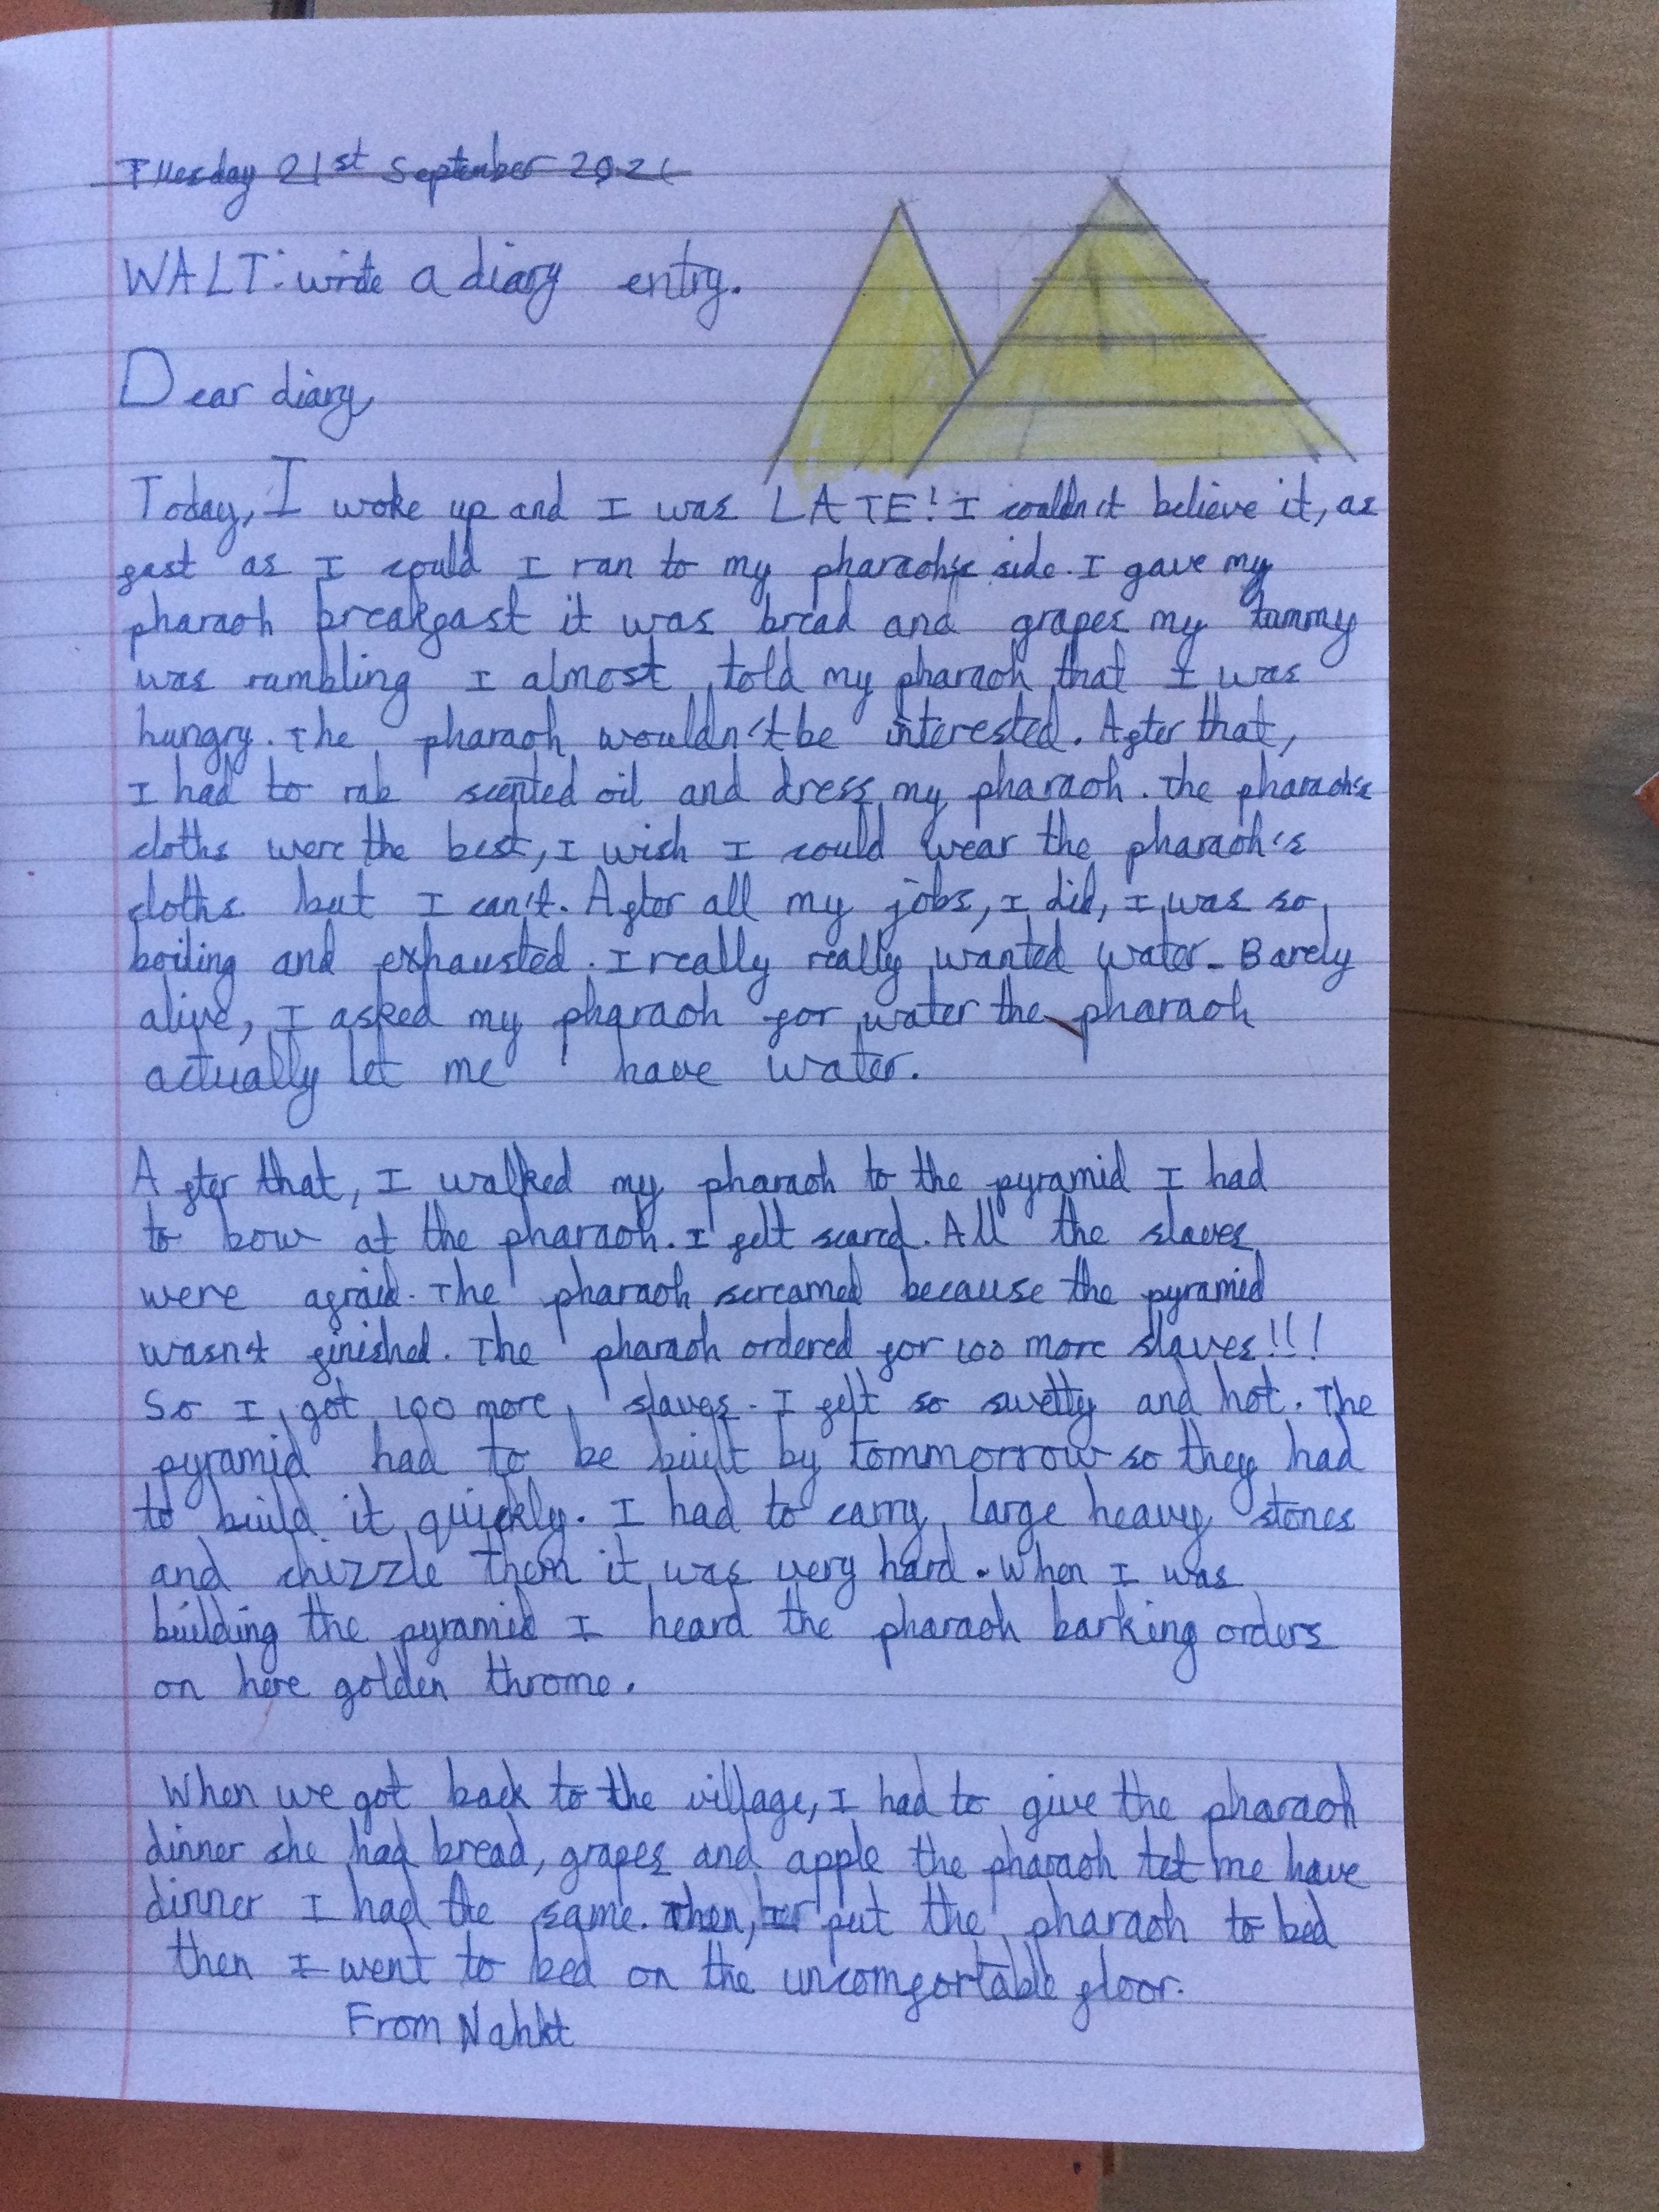 Tuesday 21st September 2021
WALT: write a diary entry.
Dear diary,
Today, I woke up and I was LATE! I couldn't believe it, as
fast as I could I ran to my pharaoh's side. I gave my
pharaoh breakfast it was bread and grapes my tummy
was rumbling I almost told my pharaoh that I was
hungry. The pharaoh wouldn't be interested. After that,
I had to rub scented oil and dress my pharaoh. The pharaoh's
cloths were the best, I wish I could wear the pharaoh's
cloths but I can't. After all my jobs, I did, I was so
boiling and exhausted. I really really wanted water. Barely
alive, I asked my pharaoh for water the pharaoh
actually let me have water.
After that, I walked my pharaoh to the pyramid I had
to bow at the pharaoh. I felt scared. All the slaves
were afraid. The pharaoh screamed because the pyramid
wasn't finished. The pharaoh ordered for 100 more slaves!!!
So I got 100 more slaves. I felt so swetty and hot. The
pyramid had to be built by tommorrow so they had
to build it quickly. I had to carry large heavy stones
and chizzle them it was very hard. When I was
building the pyramid I heard the pharaoh barking orders
on here golden throme.
When we got back to the village, I had to give the pharaoh
dinner she had bread, grapes and apple the pharaoh let me have
dinner I had the same. Then, I put the pharaoh to bed
then I went to bed on the uncomfortable floor.
From Nahkt